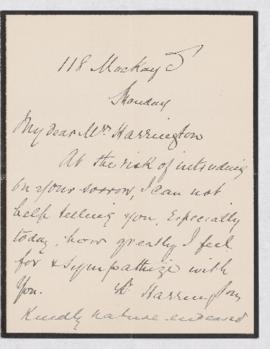 118 Mackay St
Monday
My dear Mrs Harrington
At the risk of intruding
on your sorrow, I can not
help telling you, especially
today, how greatly I feel
for & sympathize with
you. Mr Harrington's
kindly nature endeared